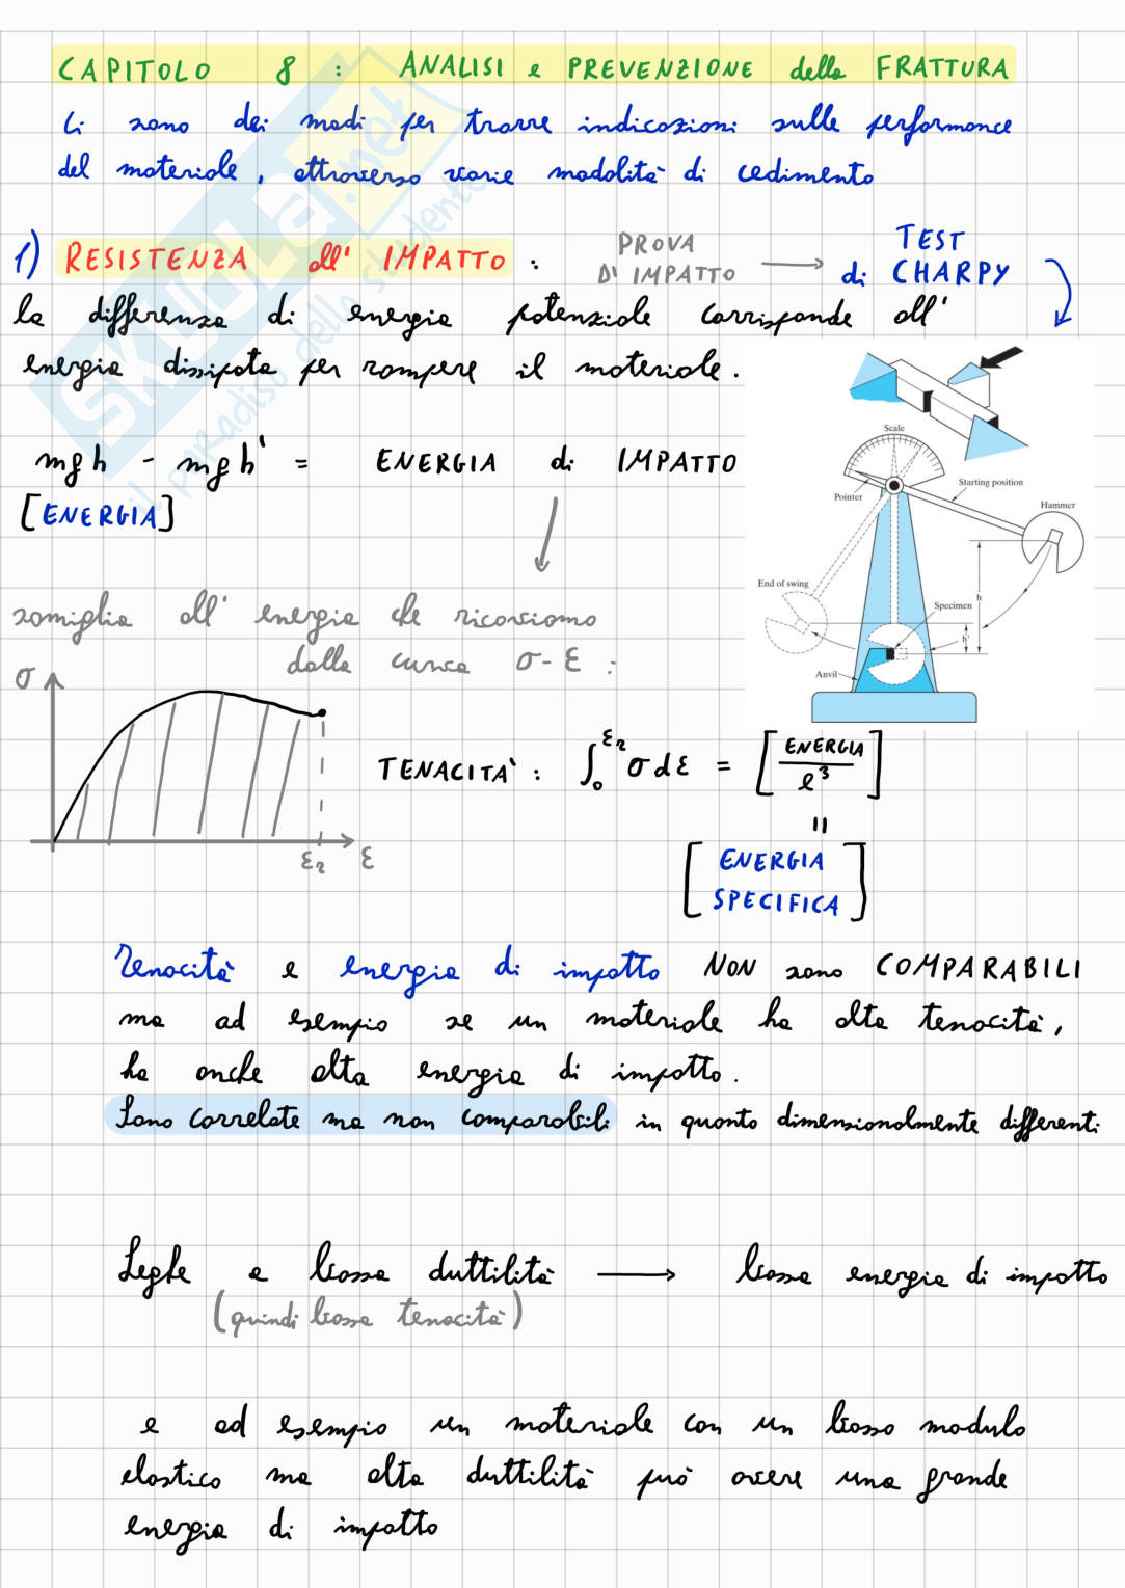 CAPITOLO 8 : ANALISI e PREVENZIONE della FRATTURA
Ci sono dei modi per trarre indicazioni sulle performance
del materiale, attraverso varie modalità di cedimento
1) RESISTENZA all' IMPATTO :
PROVA
DI IMPATTO
TEST
di CHARPY
la differenza di energia potenziale corrisponde all'
energia dissipata per rompere il materiale.
mgh - mgh' = ENERGIA di IMPATTO
[ENERGIA]
Scale
Pointer
Starting position
Hammer
End of swing
Specimen
Anvil
h
h'
somiglia all' energia che ricaviamo
dalla curva σ-ε :
σ
εr ε
TENACITA' : ∫₀^εr σdε = [ENERGIA/l³]
=
[ENERGIA
SPECIFICA]
Tenacità e energia di impatto NON sono COMPARABILI
ma ad esempio se un materiale ha alta tenacità,
ha anche alta energia di impatto.
Sono correlate ma non comparabili in quanto dimensionalmente differenti
Leghe a bassa duttilità → bassa energia di impatto
(quindi bassa tenacità)
e ad esempio un materiale con un basso modulo
elastico ma alta duttilità può avere una grande
energia di impatto
SKUOLA.net
il paradiso dello studente